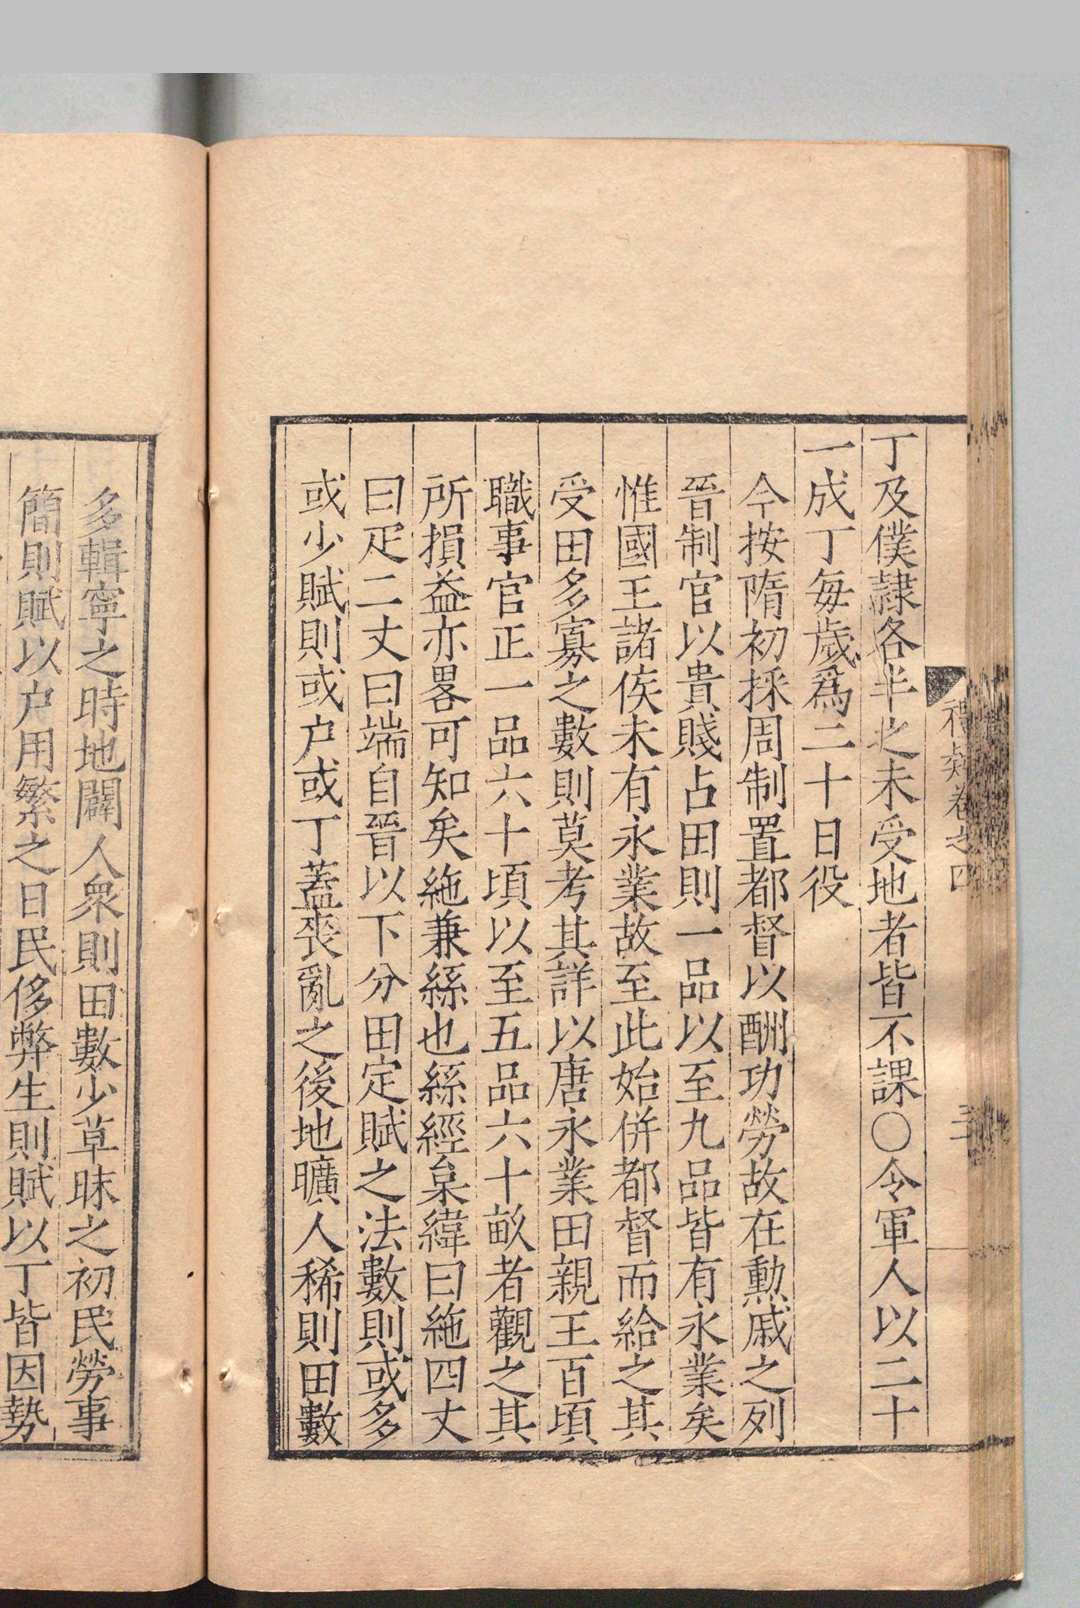 丁及僕隷各半之未受地者皆不課〇令軍人以二十
一成丁每歲爲二十日役
今按隋初採周制置都督以酬功勞故在勲戚之列
晉制官以貴賤占田則一品以至九品皆有永業矣
惟國王諸侯未有永業故至此始併都督而給之其
受田多寡之數則莫考其詳以唐永業田親王百頃
職事官正一品六十頃以至五品六十畝者觀之其
所損益亦畧可知矣絁兼絲也絲經枲緯曰絁四丈
曰疋二丈曰端自晉以下分田定賦之法數則或多
或少賦則或户或丁蓋喪亂之後地曠人稀則田數
多輯寧之時地闢人衆則田數少草昧之初民勞事
簡則賦以户用繁之日民侈弊生則賦以丁皆因勢
卷之四